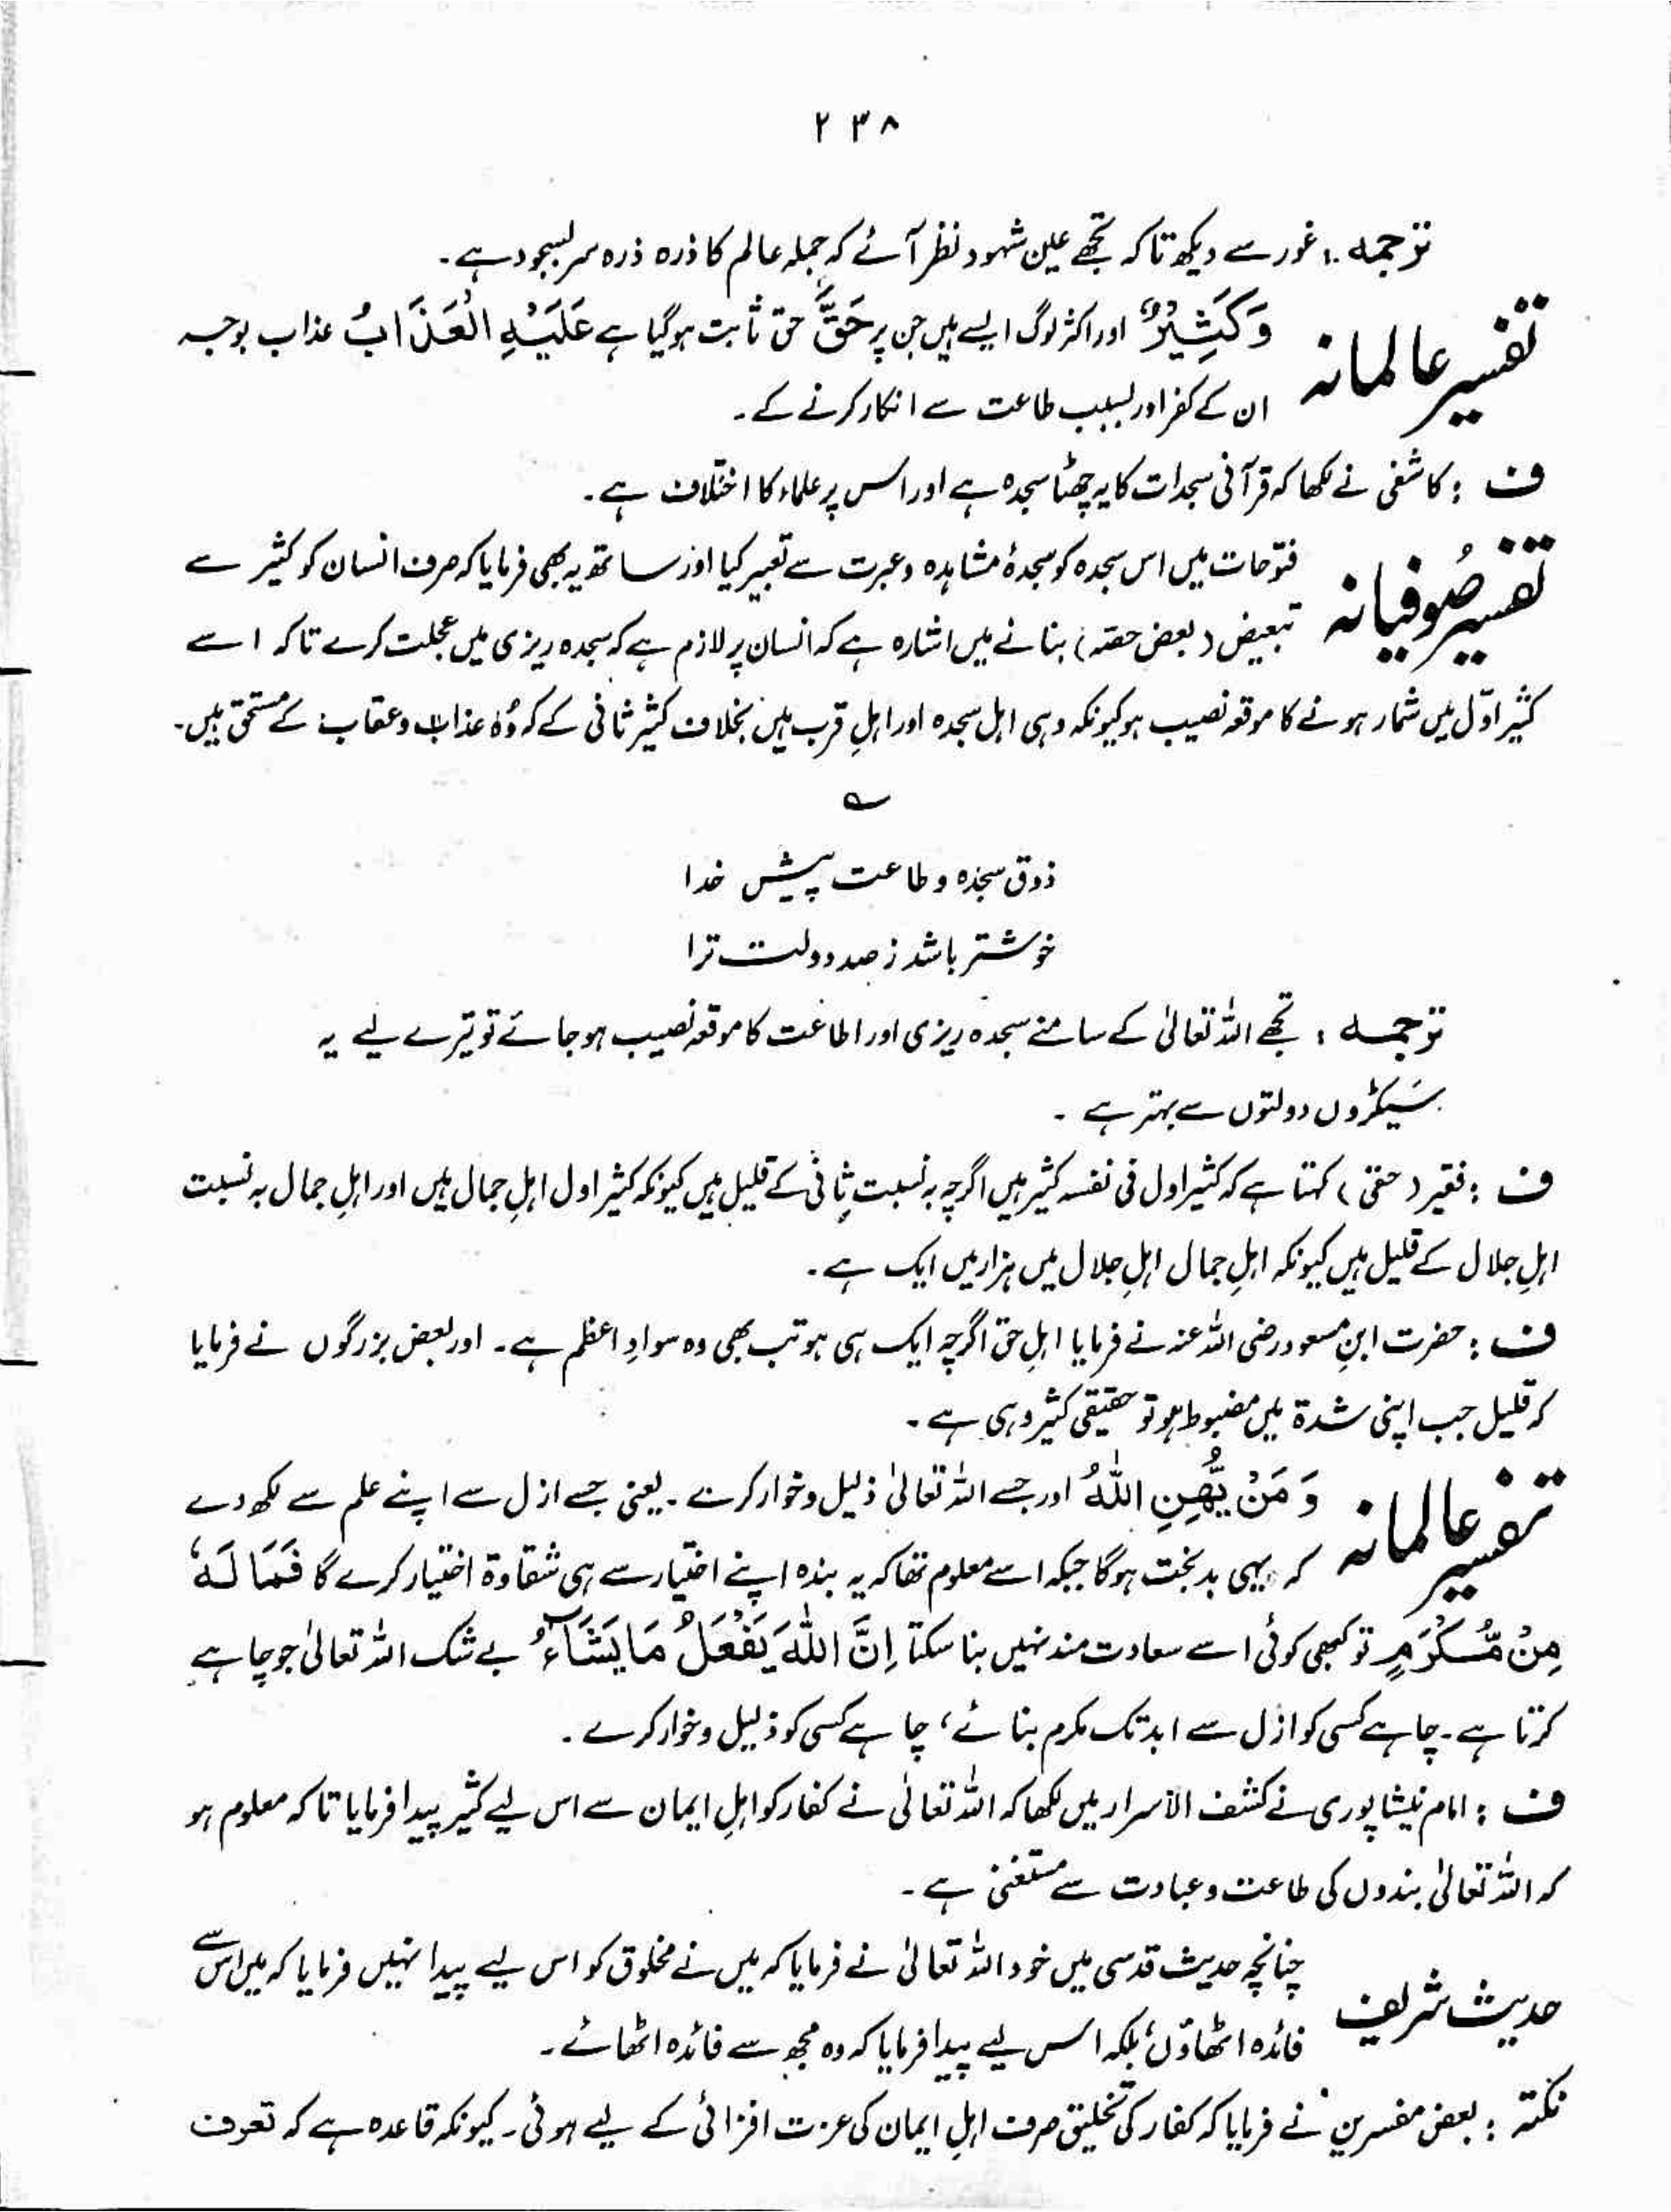 ۲۳۸
ترجمہ : غور سے دیکھ تاکہ تجھے عین شہود نظر آئے کہ جملہ عالم کا ذرہ ذرہ سربسجود ہے۔
تفسیر عالمانہ وَكَثِيْرٌ اور اکثر لوگ ایسے ہیں جن پر حَقَّ حق ثابت ہوگیا ہے عَلَيْهِ الْعَذَابُ عذاب بوجہ
ان کے کفر اور بسبب طاعت سے انکار کرنے کے۔
ف : کاشفی نے لکھا کہ قرآنی سجدات کا یہ چھٹا سجدہ ہے اور اس پر علماء کا اختلاف ہے۔
تفسیر صُوفیانہ فتوحات میں اس سجدہ کو سجدۂ مشاہدہ و عبرت سے تعبیر کیا اور ساتھ یہ بھی فرمایا کہ صرف انسان کو کثیر سے
تبعیض (بعض حصّہ) بنانے میں اشارہ ہے کہ انسان پر لازم ہے کہ سجدہ ریزی میں عجلت کرے تاکہ اسے
کثیر اوّل میں شمار ہونے کا موقعہ نصیب ہو کیونکہ وہی اہل سجدہ اور اہلِ قرب ہیں بخلاف کثیر ثانی کے کہ وُہ عذاب و عقاب کے مستحق ہیں۔
؎
ذوق سجدہ و طاعت پیش خدا
خوشتر باشد ز صد دولت ترا
ترجمہ : تجھے اللہ تعالیٰ کے سامنے سجدہ ریزی اور اطاعت کا موقعہ نصیب ہوجائے تو تیرے لیے یہ
سَیکڑوں دولتوں سے بہتر ہے۔
ف : فقیر (حقی) کہتا ہے کہ کثیر اول فی نفسہ کثیر ہیں اگرچہ بہ نسبت ثانی کے قلیل ہیں کیونکہ کثیر اول اہلِ جمال ہیں اور اہلِ جمال بہ نسبت
اہلِ جلال کے قلیل ہیں کیونکہ اہلِ جمال اہلِ جلال میں ہزار میں ایک ہے۔
ف : حضرت ابنِ مسعود رضی اللہ عنہ نے فرمایا اہلِ حق اگرچہ ایک ہی ہو تب بھی وہ سوادِ اعظم ہے۔ اور بعض بزرگوں نے فرمایا
کہ قلیل جب اپنی شدۃ میں مضبوط ہو تو حقیقی کثیر وہی ہے۔
تفسیر عالمانہ وَمَنْ يُّهِنِ اللّٰهُ اور جسے اللہ تعالیٰ ذلیل و خوار کرے۔ یعنی جسے ازل سے اپنے علم سے لکھ دے
کہ یہی بدبخت ہوگا جبکہ اسے معلوم تھا کہ یہ بندہ اپنے اختیار سے ہی شقاوۃ اختیار کرے گا فَمَا لَهٗ
مِنْ مُّكْرَمٍ تو کبھی کوئی اسے سعادت مند نہیں بنا سکتا اِنَّ اللّٰهَ يَفْعَلُ مَا يَشَآءُ بے شک اللہ تعالیٰ جو چاہے
کرتا ہے۔ چاہے کسی کو ازل سے ابد تک مکرم بنائے، چاہے کسی کو ذلیل و خوار کرے۔
ف : امام نیشاپوری نے کشف الاسرار میں لکھا کہ اللہ تعالیٰ نے کفار کو اہلِ ایمان سے اس لیے کثیر پیدا فرمایا تاکہ معلوم ہو
کہ اللہ تعالیٰ بندوں کی طاعت و عبادت سے مستغنی ہے۔
حدیث شریف چنانچہ حدیث قدسی میں خود اللہ تعالیٰ نے فرمایا کہ میں نے مخلوق کو اس لیے پیدا نہیں فرمایا کہ میں اس سے
فائدہ اٹھاؤں، بلکہ اس لیے پیدا فرمایا کہ وہ مجھ سے فائدہ اٹھائے۔
نکتہ : بعض مفسرین نے فرمایا کہ کفار کی تخلیق صرف اہلِ ایمان کی عزت افزائی کے لیے ہوئی۔ کیونکہ قاعدہ ہے کہ تعرف